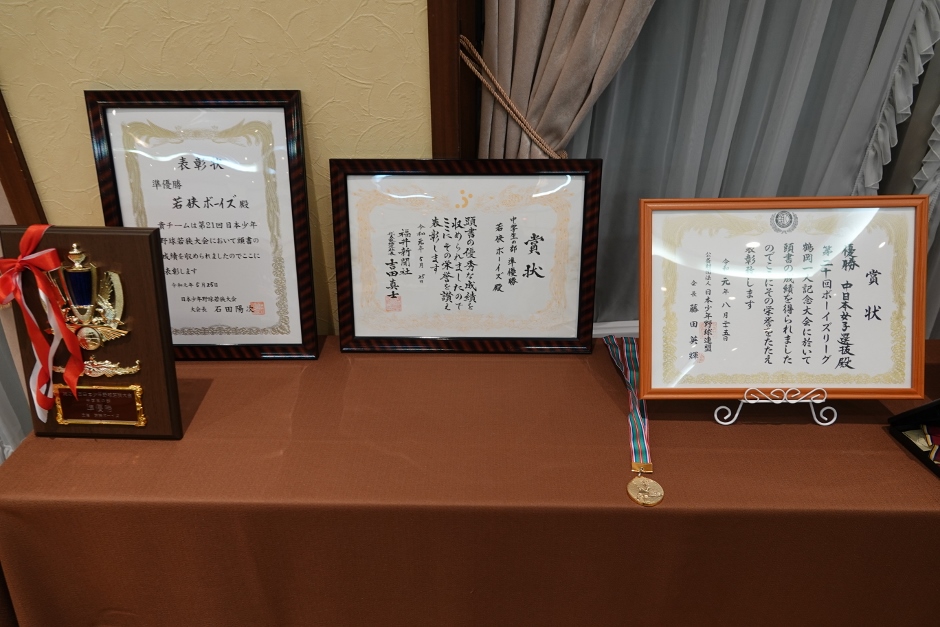 表彰状
準優勝
若狭ボーイズ 殿
貴チームは第21回日本少年
野球若狭大会において頭書の
成績を収められましたのでここに
表彰します
令和元年5月25日
日本少年野球若狭大会
大会長 石田陽次
賞状
中学生の部 準優勝
若狭ボーイズ殿
頭書の優秀な成績を
収められましたので
ここにその栄誉を讃え
表彰します
令和元年5月25日
福井新聞社
吉田真士
賞状
優勝 中日本女子選抜殿
第二十回ボーイズリーグ
鶴岡一人記念大会に於いて
頭書の成績を得られました
のでここにその栄誉をたたえ
表彰致します
令和元年八月十五日
公益財団法人日本少年野球連盟
会長 藤田英輝
準優勝